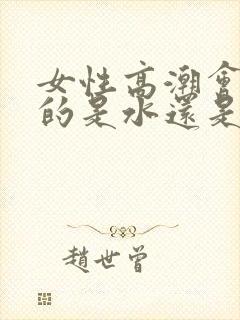 女性高潮會
的是水還是
趙世曾